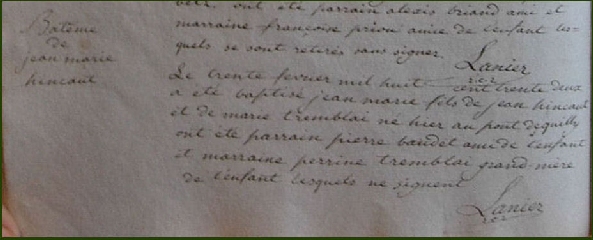 ont été parrain alexis briand ami et
marraine françoise priou amie de l'enfant les-
quels se sont retirés sans signer.
Lanier
rcr
Batême
de
jean marie
hincaut
Le trente fevrier mil huit cent trente deux
a été baptisé jean marie fils de jean hincaut
et de marie tremblai né hier au pont de quilly
ont été parrain pierre baudet ami de l'enfant
et marraine perrine tremblai grand-mère
de l'enfant lesquels ne signent
Lanier
rcr